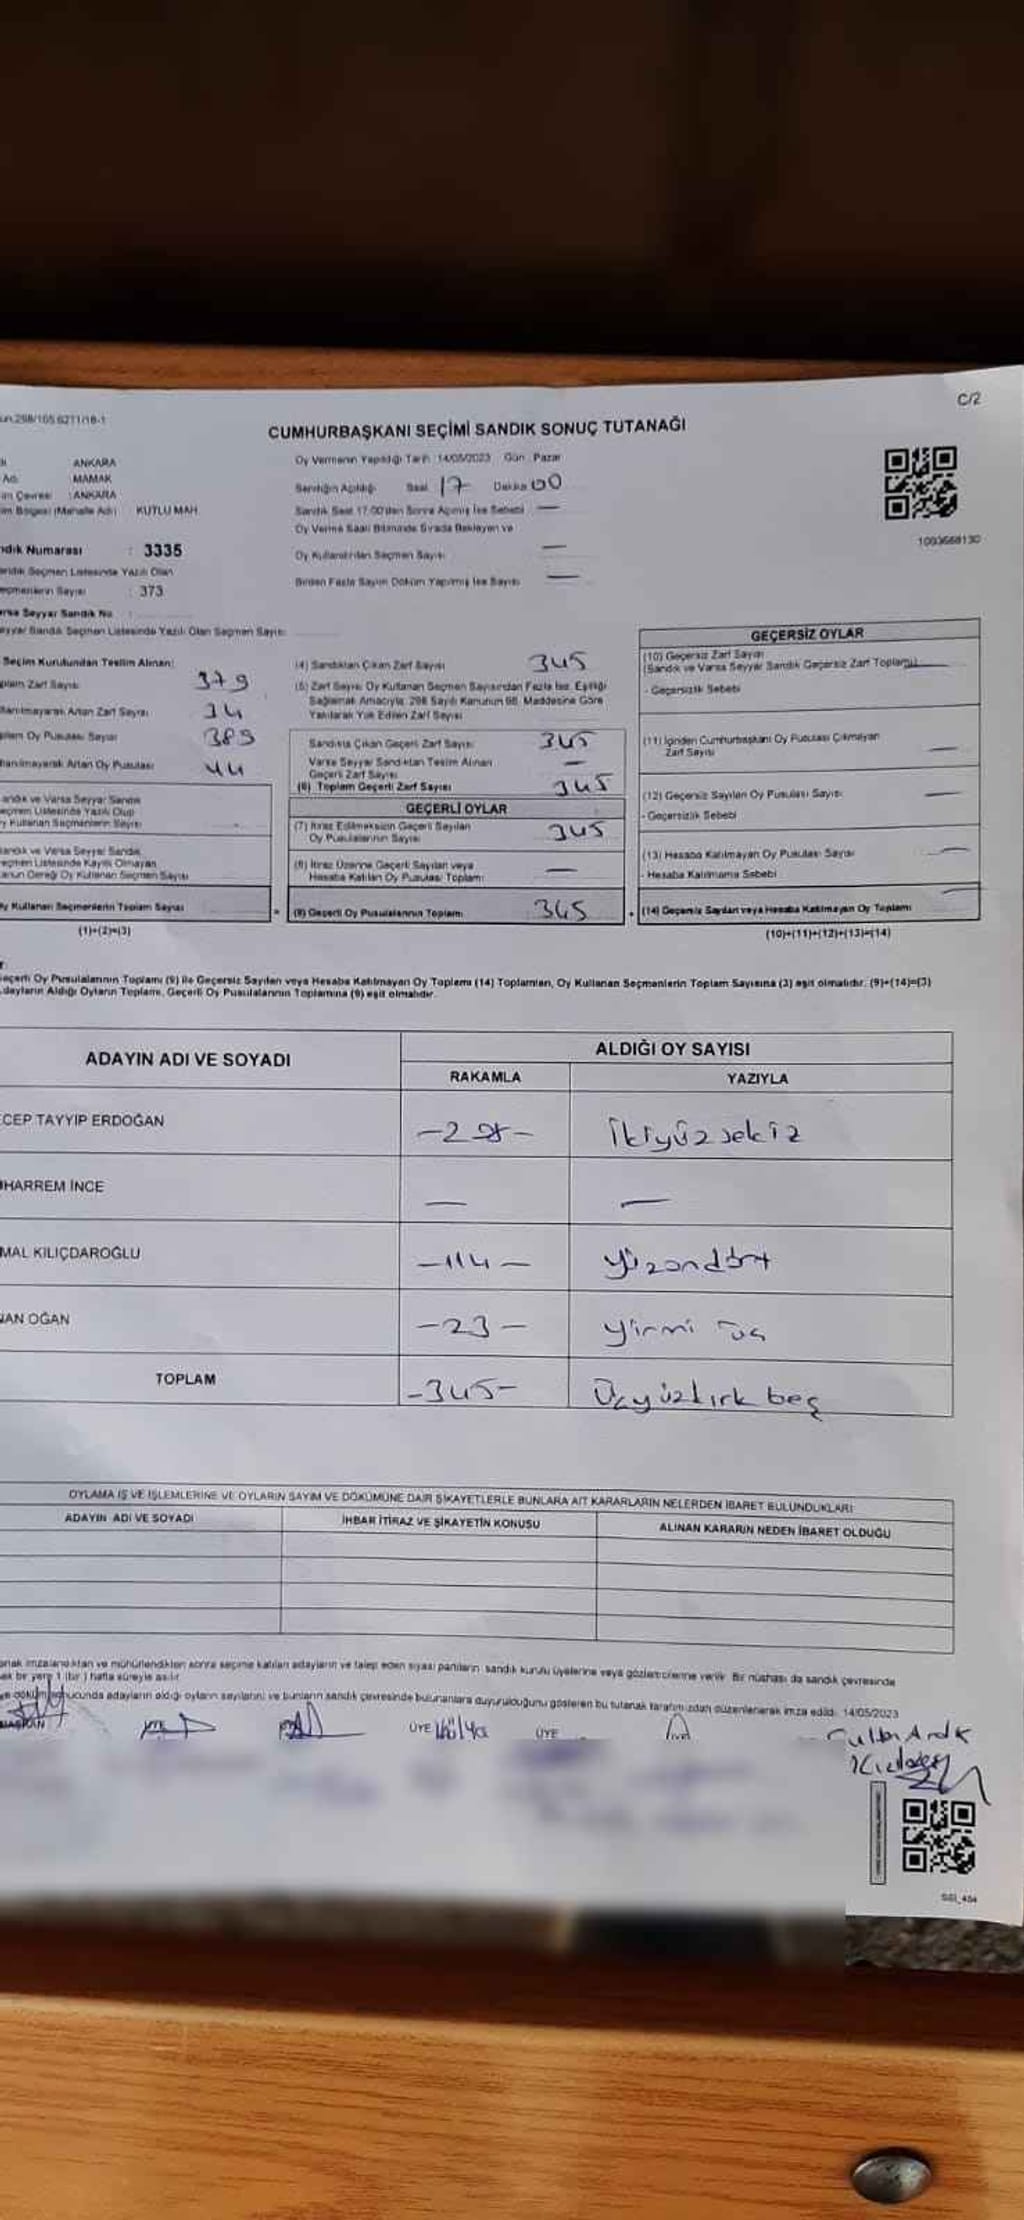 C/2
CUMHURBAŞKANI SEÇİMİ SANDIK SONUÇ TUTANAĞI
ANKARA
MAMAK
ANKARA
KUTLU MAH
Numarası : 3335
Sandık Seçmen Listesinde Yazılı Olan
Seçmenlerin Sayısı : 373
Seyyar Sandık No
Seyyar Sandık Seçmen Listesinde Yazılı Olan Seçmen Sayısı
Oy Vermenin Yapıldığı Tarih :14/05/2023 Gün : Pazar
Sandığın Açıldığı Saat 17 Dakika 00
Sandık Saat 17:00'den Sonra Açılmış İse Sebebi —
Oy Verme Saati Bitiminde Sırada Bekleyen ve
Oy Kullandırılan Seçmen Sayısı —
Birden Fazla Sayım Döküm Yapılmış İse Sayısı —
1003668130
Seçim Kurulundan Teslim Alınan:
Zarf Sayısı 379
Artan Zarf Sayısı 34
Oy Pusulası Sayısı 389
Artan Oy Pusulası 44
Sandık ve Varsa Seyyar Sandık
Seçmen Listesinde Yazılı Olup
Oy Kullanan Seçmenlerin Sayısı
Sandık ve Varsa Seyyar Sandık
Seçmen Listesinde Kayıtlı Olmayan
Kanun Gereği Oy Kullanan Seçmen Sayısı
Oy Kullanan Seçmenlerin Toplam Sayısı
(1)+(2)=(3)
(4) Sandıktan Çıkan Zarf Sayısı 345
(5) Zarf Sayısı Oy Kullanan Seçmen Sayısından Fazla İse, Eşitliği
Sağlamak Amacıyla, 298 Sayılı Kanunun 98. Maddesine Göre
Yakılarak Yok Edilen Zarf Sayısı
Sandıkta Çıkan Geçerli Zarf Sayısı 345
Varsa Seyyar Sandıktan Teslim Alınan
Geçerli Zarf Sayısı —
(6) Toplam Geçerli Zarf Sayısı 345
GEÇERLİ OYLAR
(7) İtiraz Edilmeksizin Geçerli Sayılan
Oy Pusulalarının Sayısı 345
(8) İtiraz Üzerine Geçerli Sayılan veya
Hesaba Katılan Oy Pusulası Toplamı —
(9) Geçerli Oy Pusulalarının Toplamı 345
GEÇERSİZ OYLAR
(10) Geçersiz Zarf Sayısı
(Sandık ve Varsa Seyyar Sandık Geçersiz Zarf Toplamı) —
- Geçersizlik Sebebi
(11) İçinden Cumhurbaşkanı Oy Pusulası Çıkmayan
Zarf Sayısı —
(12) Geçersiz Sayılan Oy Pusulası Sayısı —
- Geçersizlik Sebebi
(13) Hesaba Katılmayan Oy Pusulası Sayısı —
- Hesaba Katılmama Sebebi
(14) Geçersiz Sayılan veya Hesaba Katılmayan Oy Toplamı —
(10)+(11)+(12)+(13)=(14)
Geçerli Oy Pusulalarının Toplamı (9) ile Geçersiz Sayılan veya Hesaba Katılmayan Oy Toplamı (14) Toplamları, Oy Kullanan Seçmenlerin Toplam Sayısına (3) eşit olmalıdır. (9)+(14)=(3)
Adayların Aldığı Oyların Toplamı, Geçerli Oy Pusulalarının Toplamına (9) eşit olmalıdır.
ADAYIN ADI VE SOYADI
ALDIĞI OY SAYISI
RAKAMLA YAZIYLA
CEP TAYYİP ERDOĞAN İkiyüzsekiz
HARREM İNCE — —
MAL KILIÇDAROĞLU -114- yüzondört
AN OĞAN -23- yirmi üç
TOPLAM -345- Üçyüzkırk beş
OYLAMA İŞ VE İŞLEMLERİNE VE OYLARIN SAYIM VE DÖKÜMÜNE DAİR ŞİKAYETLERLE BUNLARA AİT KARARLARIN NELERDEN İBARET BULUNDUKLARI
ADAYIN ADI VE SOYADI İHBAR İTİRAZ VE ŞİKAYETİN KONUSU ALINAN KARARIN NEDEN İBARET OLDUĞU
imzalandıktan ve mühürlendikten sonra seçime katılan adayların ve talep eden siyasi partilerin sandık kurulu üyelerine veya gözlemcilerine verilir. Bir nüshası da sandık çevresinde
bir yere 1 (bir) hafta süreyle asılır.
sonucunda adayların aldığı oyların sayılarını ve bunların sandık çevresinde bulunanlara duyurulduğunu gösteren bu tutanak tarafımızdan düzenlenerek imza edildi. 14/05/2023
BAŞKAN ÜYE ÜYE